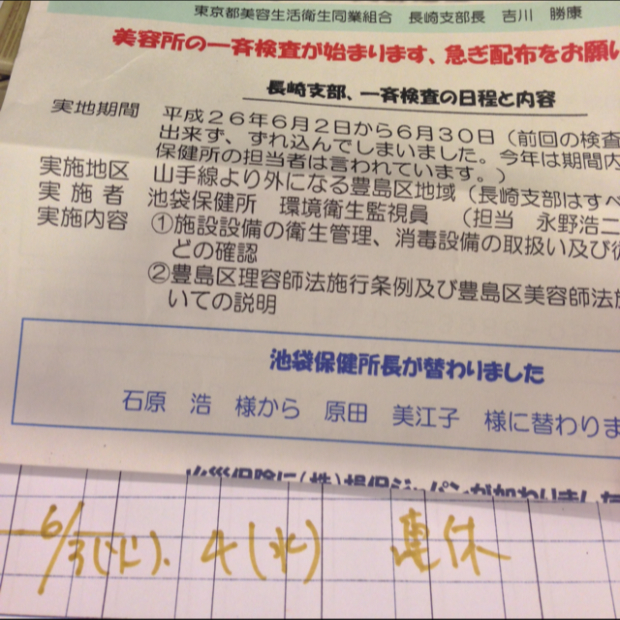 東京都美容生活衛生同業組合 長崎支部長 吉川 勝康
美容所の一斉検査が始まります、急ぎ配布をお願い
長崎支部、一斉検査の日程と内容
実地期間 平成26年6月2日から6月30日(前回の検査
出来ず、ずれ込んでしまいました。今年は期間内
保健所の担当者は言われています。)
実施地区 山手線より外になる豊島区地域(長崎支部はすべ
実施者 池袋保健所 環境衛生監視員 (担当 永野浩二
実施内容 ①施設設備の衛生管理、消毒設備の取扱い及び
どの確認
②豊島区理容師法施行条例及び豊島区美容師法施
いての説明
池袋保健所長が替わりました
石原 浩 様から 原田 美江子 様に替わりま
火災保険に(株)損保ジャパンが加わりました
6/3(火). 4(水) 連休